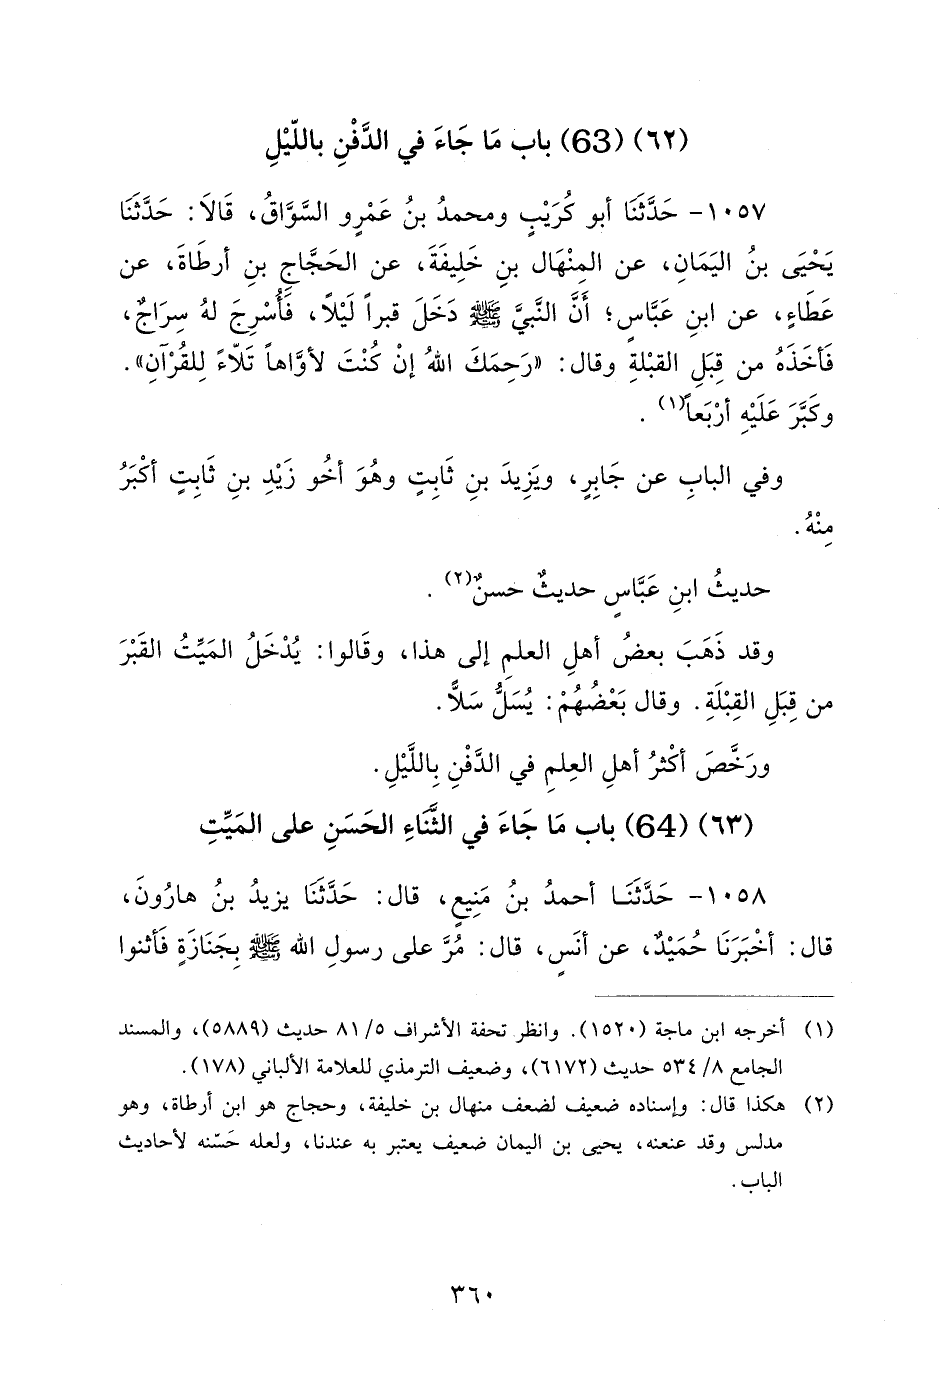 (٦٢) (63) باب مَا جَاءَ في الدَّفْنِ بالليْلِ
١٠٥٧- حَدَّثَنَا أبو كُرَيْبٍ ومحمدُ بنُ عَمْرٍو السَّوَّاقُ، قَالَا: حَدَّثَنَا
يَحْيَى بنُ اليَمَانِ، عن المِنْهَال بنِ خَلِيفَةَ، عن الحَجَّاجِ بنِ أرطَاةَ، عن
عَطَاءٍ، عن ابنِ عَبَّاسٍ؛ أنَّ النَّبيَّ ﷺ دَخَلَ قبراً لَيْلاً، فَأُسْرِجَ لهُ سِرَاجٌ،
فَأخَذَهُ من قِبَلِ القبْلةِ وقال: «رَحِمَكَ اللهُ إنْ كُنْتَ لأوَّاهاً تَلّاءً لِلقُرْآنِ».
وكَبَّرَ عَلَيْهِ أرْبَعاً(١) .
وفي البابِ عن جَابِرٍ، ويَزِيدَ بنِ ثَابِتٍ وهُوَ أخُو زَيْدِ بنِ ثَابِتٍ أكْبَرُ
مِنْهُ.
حديثُ ابنِ عَبَّاسٍ حديثٌ حسنٌ(٢) .
وقد ذَهَبَ بعضُ أهلِ العلمِ إلى هذا، وقَالوا: يُدْخَلُ المَيِّتُ القَبْرَ
من قِبَلِ القِبْلَةِ. وقال بَعْضُهُمْ: يُسَلُّ سَلًّا.
ورَخَّصَ أكْثرُ أهلِ العِلمِ في الدَّفْنِ بِاللَّيْلِ.
(٦٣) (64) باب مَا جَاءَ في الثَّنَاءِ الحَسَنِ على المَيِّتِ
١٠٥٨- حَدَّثَنَا أحمدُ بنُ مَنِيعٍ، قال: حَدَّثَنَا يزيدُ بنُ هارُونَ،
قال: أخْبَرَنَا حُمَيْدٌ، عن أنَسٍ، قال: مُرَّ على رسولِ الله ﷺ بِجَنَازَةٍ فَأثنوا
(١) أخرجه ابن ماجة (١٥٢٠). وانظر تحفة الأشراف ٥/ ٨١ حديث (٥٨٨٩)، والمسند
الجامع ٨/ ٥٣٤ حديث (٦١٧٢)، وضعيف الترمذي للعلامة الألباني (١٧٨).
(٢) هكذا قال: وإسناده ضعيف لضعف منهال بن خليفة، وحجاج هو ابن أرطاة، وهو
مدلس وقد عنعنه، يحيى بن اليمان ضعيف يعتبر به عندنا، ولعله حَسّنه لأحاديث
الباب.
٣٦٠